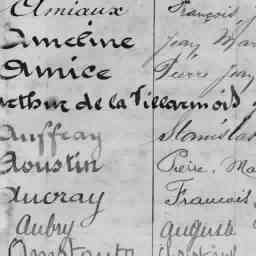 Amiaux François, J
Ameline Jean Mar
Amice Pierre Jean
Arthur de la Villarmois
Auffray Stanislas
Aoustin Pierre, Ma
Aucray François
Aubry Auguste